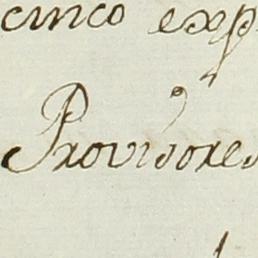 cinco exp
Provisores